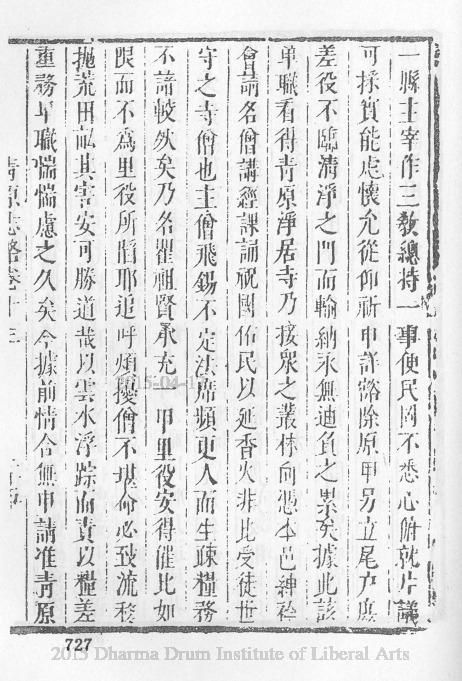 一縣主宰作三教總持一事便民罔不悉心俯就片議
可採實能虗懷允從仰祈申詳豁除原甲另立尾戶庶
差役不臨清淨之門而輸納永無逋負之累矣據此該
卑職看得青原淨居寺乃接衆之叢林向憑本邑紳衿
會請名僧講經課誦祝國佑民以延香火非比受徒世
守之寺僧也主僧飛錫不定法席頻更人而生疎糧務
不諳較然矣乃名瞿祖賢承充一甲里役安得催比如
限而不爲里役所䧟耶追呼煩擾僧不堪命必致流移
拋荒田畝其害安可勝道哉以雲水浮踪而責以糧差
重務卑職惴惴慮之久矣今據前情合無申請准青原
青原志略卷十三
727
2015-04-1
2015 Dharma Drum Institute of Liberal Arts